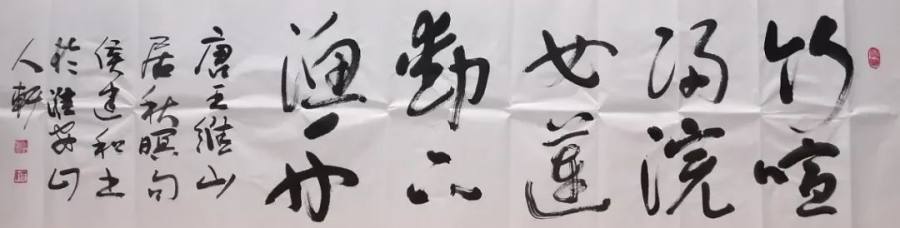 竹喧
归浣
女蓮
動下
渔舟
唐王維山
居秋暝句
侯建和书
於淮安山
人軒